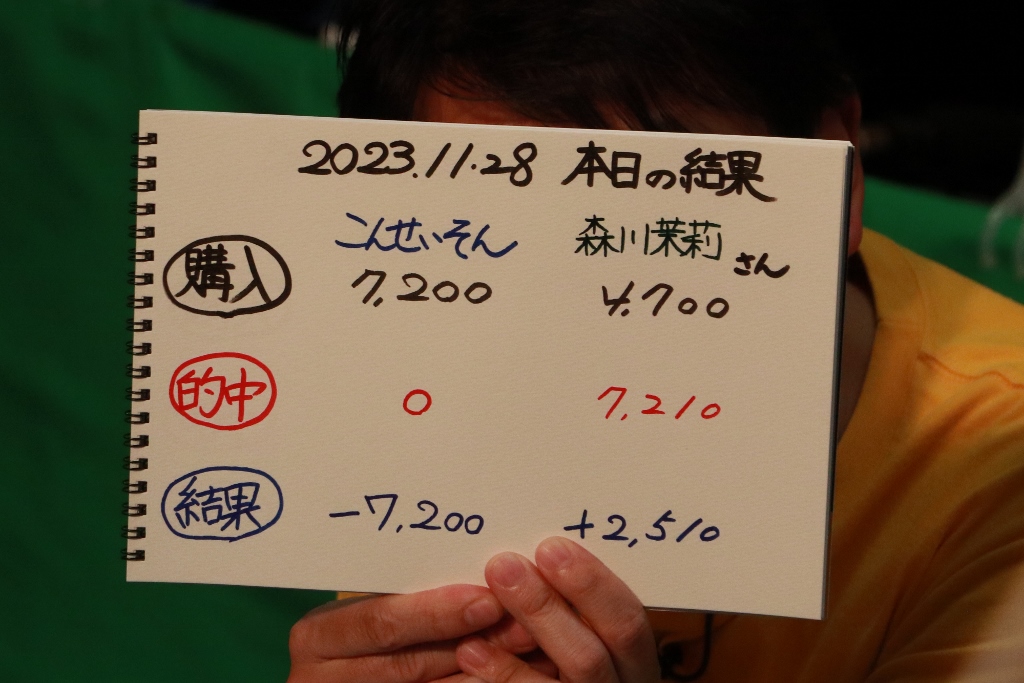 2023.11.28 本日の結果
こんせいそん 森川茉莉さん
購入 7,200 4,700
的中 0 7,210
結果 -7,200 +2,510